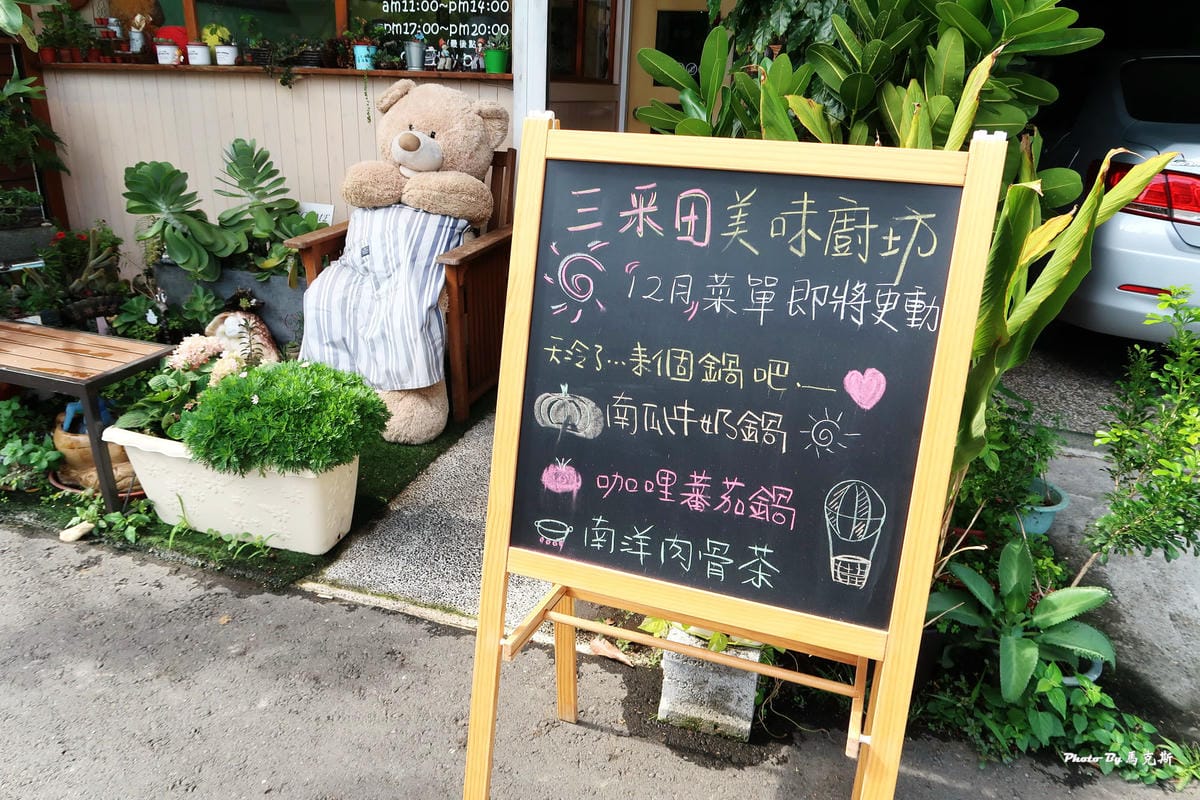 am11:00~pm14:00
pm17:00~pm20:00
三采田美味廚坊
12月菜單即將更動
天冷了...來個鍋吧.—
南瓜牛奶鍋
咖哩蕃茄鍋
南洋肉骨茶
Photo By 馬克斯